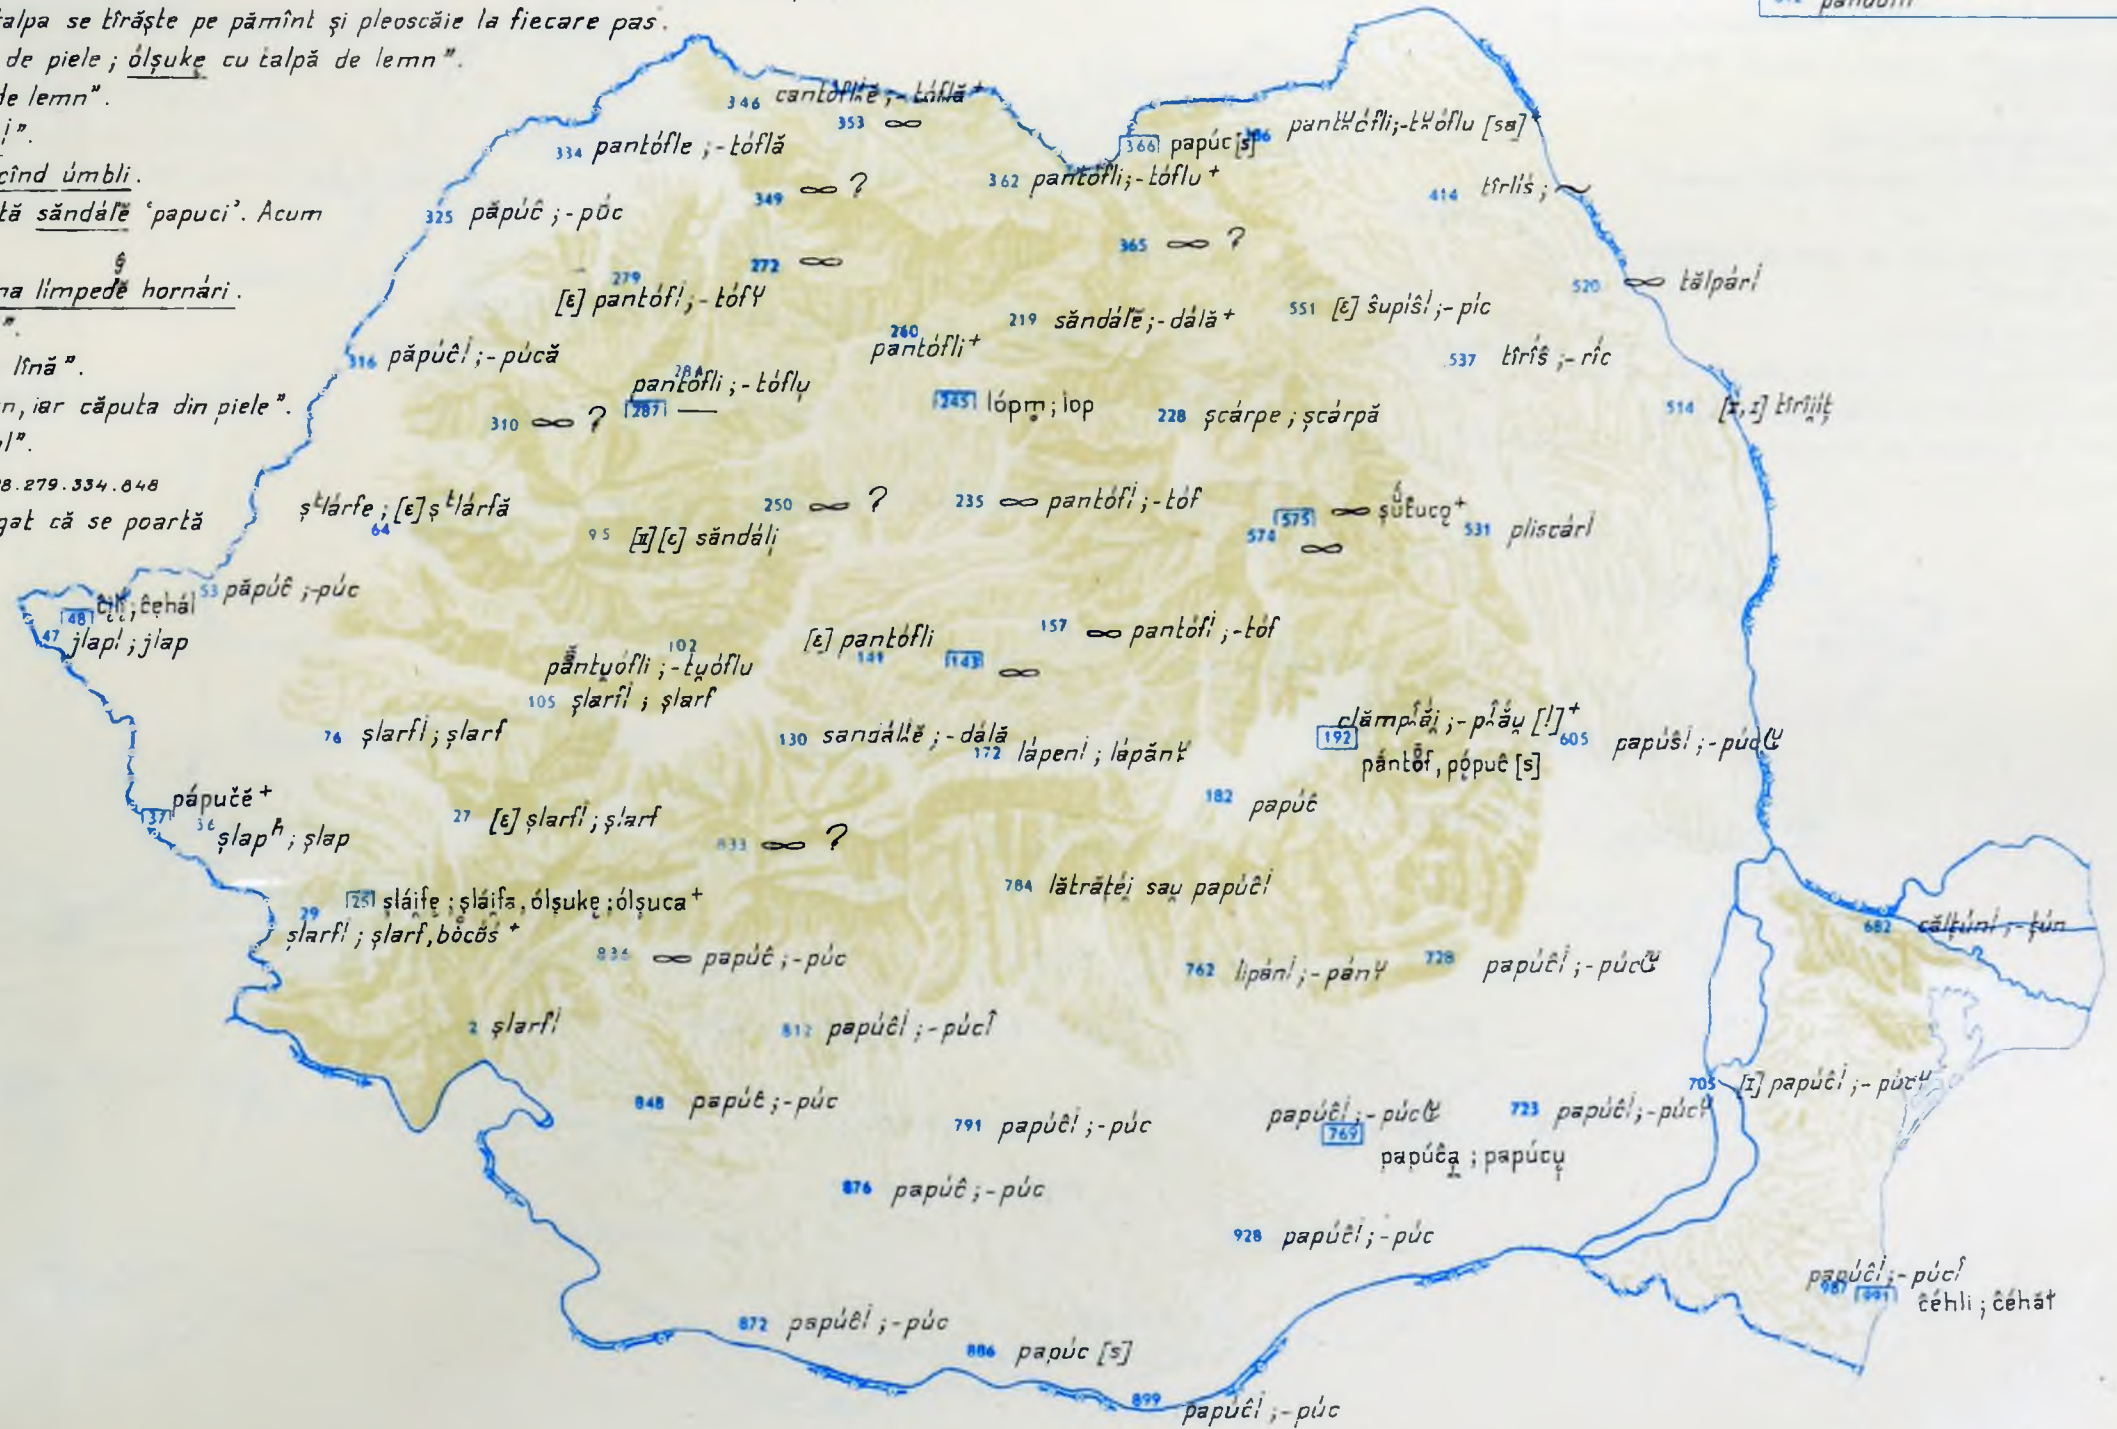 alpa se tîrăște pe pămînt și pleoscăie la fiecare pas.
de piele; ólșuke cu talpă de lemn”.
de lemn”.
cînd úmbli.
tă săndálĕ ‘papuci’. Acum
na límpedĕ hornári.
lînă”.
n, iar căputa din piele”.
8.279.334.848
gat că se poartă
346 cantóflĭĕ; -tóflă+
353 ∞
334 pantófle; -tóflă
366 papúc [s]
386 pantu̯ófli; -tu̯óflu [sa]+
349 ∞ ?
362 pantófli; -tóflu+
414 tîrlíś; ~
325 păpúĉ; -púc
365 ∞ ?
272 ∞
279 [ε] pantófi; -tófu
520 ∞ tălpári
219 săndálĕ; -dálă+
551 [ε] ŝupíŝi; -píc
260 pantófli+
316 păpúĉi; -púcă
537 tîríŝ; -ríc
284 pantófli; -tóflu̯
287 —
245 lópm̥; lop
228 șcárpe; șcárpă
514 [I,I] tîrîi̯íț
310 ∞ ?
64 ștlárfe; [ε] ștlárfă
250 ∞ ?
235 ∞ pantófi; -tóf
95 [II][ε] săndáli̯
575 ∞ șútuco̧+
574 ∞
531 pliscári
53 păpúĉ; -púc
48 ĉili̯; ĉẹhál
47 jlapi; jlap
157 ∞ pantófi; -tóf
141 [ε] pantófli
143 ∞
102 păntu̯ófli; -tu̯óflu
105 șlarfi; șlarf
76 șlarfi; șlarf
130 sandálĭĕ; -dálă
172 lápeni; lápănu
192 clămpắi̯; -pắu̯ [!]+
pántof, pópuĉ [s]
605 papúŝi; -púcu
182 papúĉ
37 pápučĕ+
36 șlapʰ; șlap
27 [ε] șlarfi; șlarf
833 ∞ ?
784 lătrắțéi̯ sau̯ papúĉi
25 șlái̯fe̯; șlái̯fa, ólșuke̯; ólșuca+
29 șlarfi; șlarf, bocóś+
682 călțúni; -țún
836 ∞ papúĉ; -púc
762 lipáni; -pánu
728 papúĉi; -púcu
2 șlarfi
812 papúĉi; -púcî
705 [I] papúĉi; -púcu
848 papúĉ; -púc
791 papúĉi; -púc
769 papúĉi; -púcu
papúĉa̯; papúcu̯
723 papúĉi; -púcu
876 papúĉ; -púc
928 papúĉi; -púc
987 papúĉi; -púcî
991 ĉéhli; ĉéhăł
872 papúĉi; -púc
886 papúc [s]
899 papúĉi; -púc